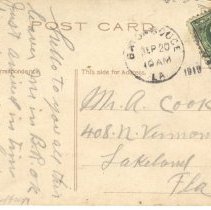 POST CARD
BATON ROUGE
SEP 20
10 AM
1910
LA
Correspondence
This side for Address.
Hello to you all this
in B.R. ok
just arrived in time
M. A. Cook
408. N. Vermon
Lakeland
Fla